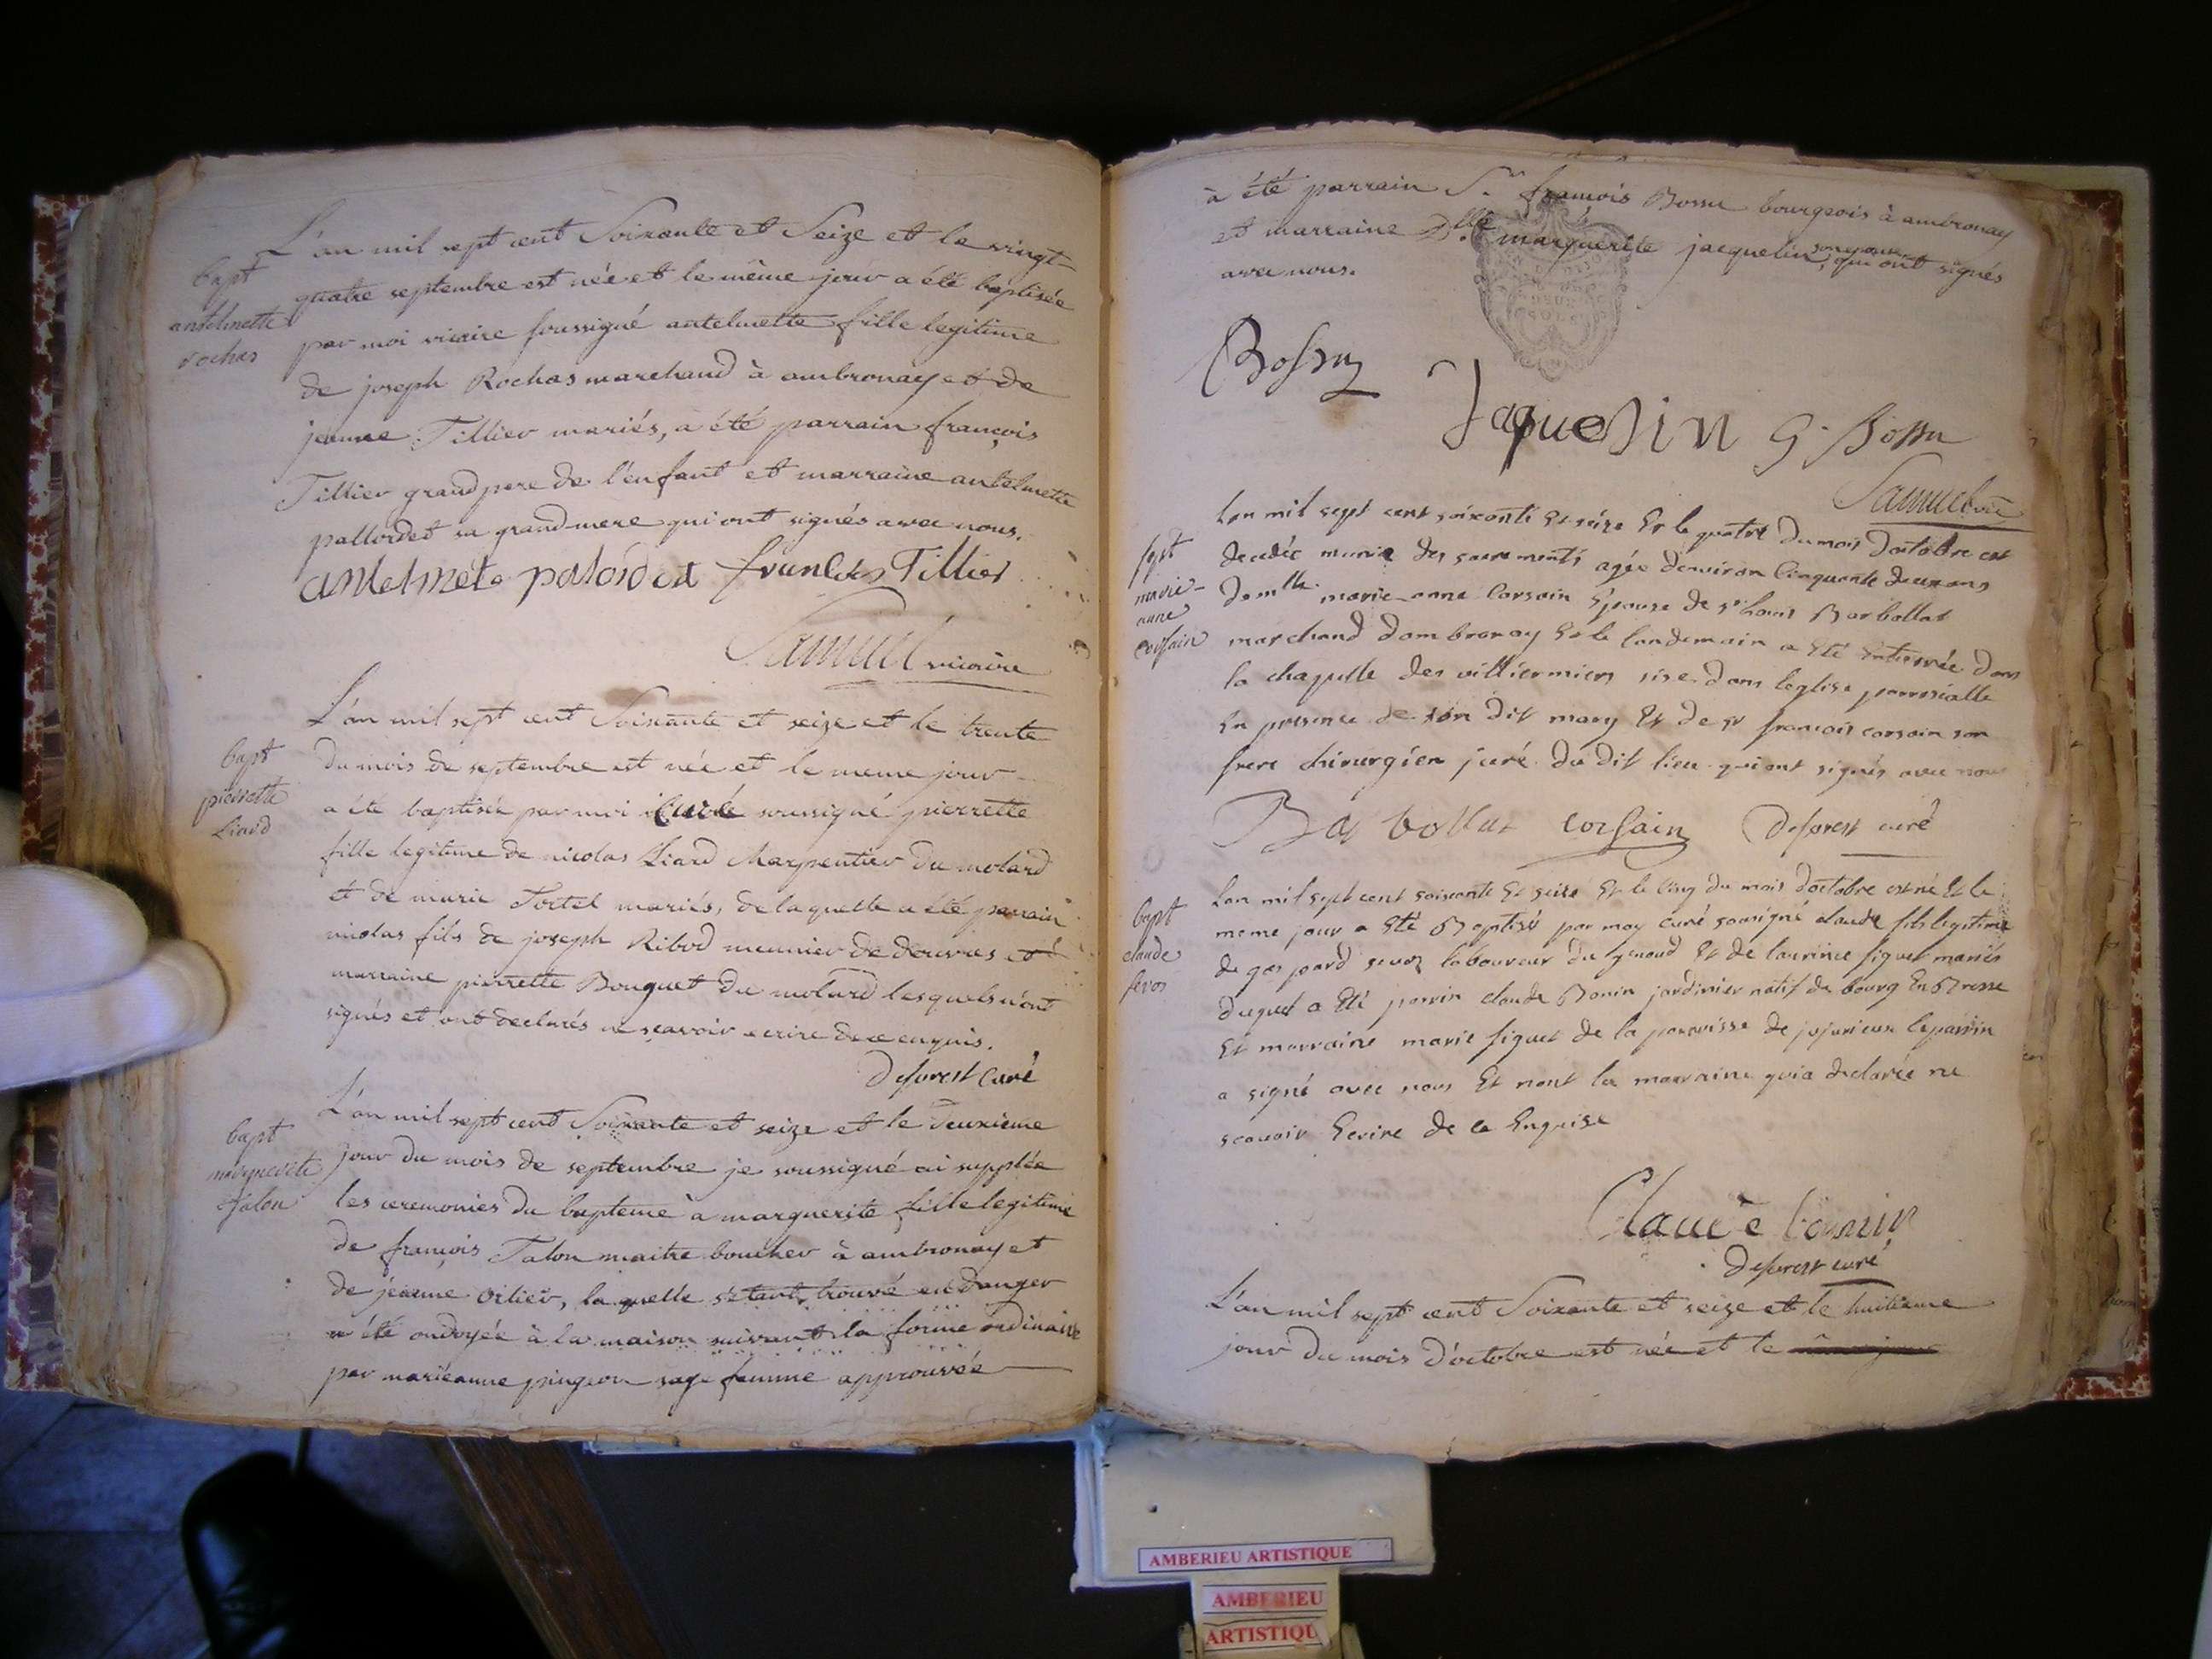 bapt
antelmette
rochas
L'an mil sept cent Soixante et Seize et le vingt-
quatre septembre est née et le même jour a été baptisée
par moi vicaire soussigné antelmette fille legitime
de joseph Rochas marchand à ambronay et de
jeanne Tillier mariés, a été parrain françois
Tillier grand pere de l'enfant et marraine antelmette
pallordet sa grand mere qui ont signés avec nous.
antelmete palordet francois Tillier
Samuel vicaire
bapt
pierrette
Liard
L'an mil sept cent Soixante et seize et le trente
du mois de septembre est née et le meme jour
a été baptisée par moi Curé soussigné pierrette
fille legitime de nicolas Liard Charpentier du molard
et de marie Tortel mariés, de laquelle a été parrain
nicolas fils de joseph Ribod meunier de douvres et
marraine pierrette Bouguet du molard lesquels n'ont
signés et ont declarés ne sçavoir ecrire de ce enquis.
Deforest Curé
bapt
marguerite
Talon
L'an mil sept cent Soixante et seize et le deuxieme
jour du mois de septembre je soussigné ai supplée
les ceremonies du bapteme a marguerite fille legitime
de françois Talon maitre boucher à ambronay et
de jeanne oilier, la quelle s'etant trouvé en danger
a été ondoyée à la maison suivant la forme ordinaire
par marieanne pingeon sage femme approuvée
à été parrain Sr. françois Bossu bourgeois à ambronay
et marraine Dlle marguerite jacquelin, son epouse qui ont signés
avec nous.
Bossu
Jaquelin G. Bossu
Samuel vic
sept
marie-
anne
corsain
Lan mil sept cent soixante Et seize Et le quatre du mois Doctobre est
decedée munie des sacrements agée denviron Cinquante deux ans
demlle marie-anne Corsain Epouse de sr Louis Barbollat
marchand dambronay Et le landemain a Eté Enterrée dans
la chapelle des villiermiers sise dans leglise parroscialle
En presence de son dit mary Et de sr francois corsain son
frere chirurgien juré du dit lieu qui ont signés avec nous
Barbollat corsain Deforest curé
bapt
claude
sevos
Lan mil sept cent soixante Et seize Et le Cinq du mois doctobre est né Et le
meme jour a Eté Baptisé par moy curé sousigné claude fils legitime
de gaspard sevoz laboureur du genoud Et de laurence siguet mariés
duquel a Eté parrin claude Bonin jardinier natif de bourg En Bresse
Et marraine marie siguet de la parroisse de jujurieux le parrin
a signé avec nous Et nont la marraine qui a declarée ne
scavoir Ecrire de ce Enquise
Claude bonnin
Deforest curé
L'an mil sept cent Soixante et seize et le huitieme
jour du mois d'octobre est née et le
AMBERIEU ARTISTIQUE
AMBERIEU
ARTISTIQU